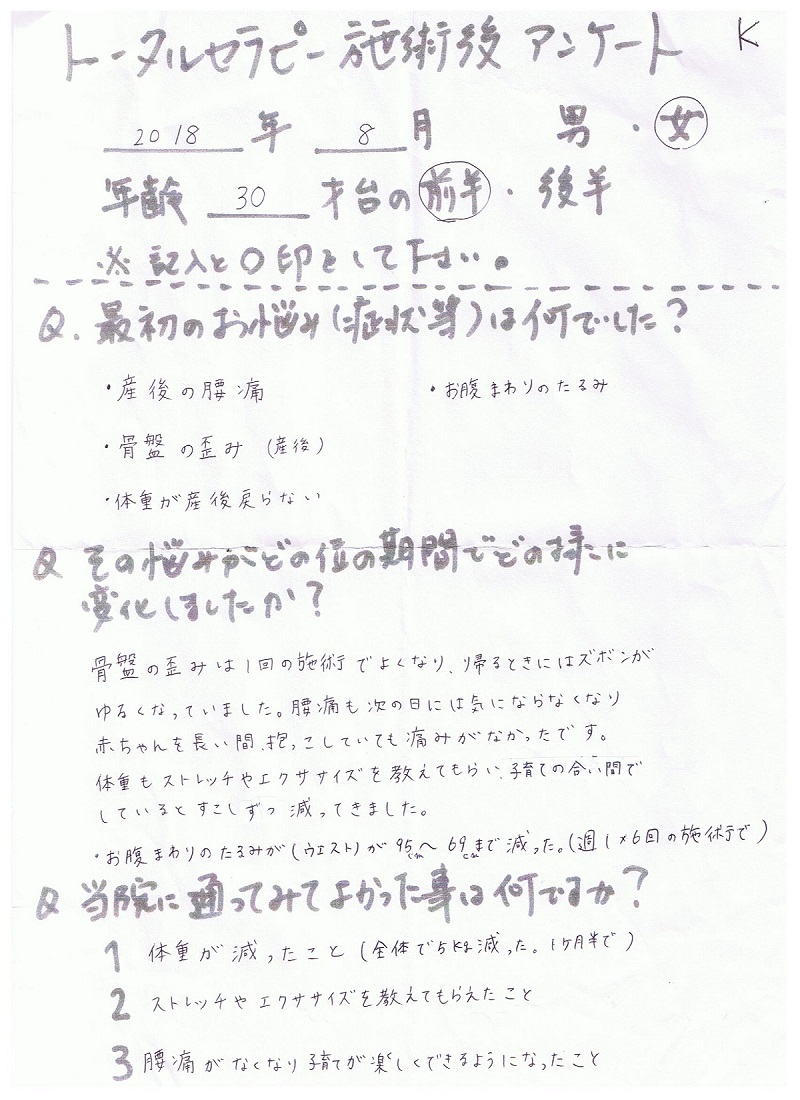 トータルセラピー施術後 アンケート K
2018年 8月 男・女
年齢 30 才台の前半・後半
※記入と〇印をして下さい。
Q. 最初のお悩み(症状等)は何でした?
・産後の腰痛 ・お腹まわりのたるみ
・骨盤の歪み (産後)
・体重が産後戻らない
Q その悩みがどの位の期間でどの様に
変化しましたか?
骨盤の歪みは1回の施術でよくなり、帰るときにはズボンが
ゆるくなっていました。腰痛も次の日には気にならなくなり
赤ちゃんを長い間、抱っこしていても痛みがなかったです。
体重もストレッチやエクササイズを教えてもらい、子育ての合い間で
しているとすこしずつ減ってきました。
・お腹まわりのたるみが(ウエスト)が95cmへ69cmまで減った。(週1×6回の施術で)
Q 当院に通ってみてよかった事は何ですか?
1 体重が減ったこと(全体で5kg減った。1ヶ月半で)
2 ストレッチやエクササイズを教えてもらえたこと
3 腰痛がなくなり子育てが楽しくできるようになったこと